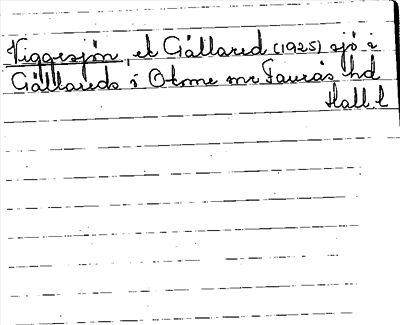 Viggesjön, el Gällared (1925) sjö i
Gällareds s Otome mr Faurås hd
Hall. l